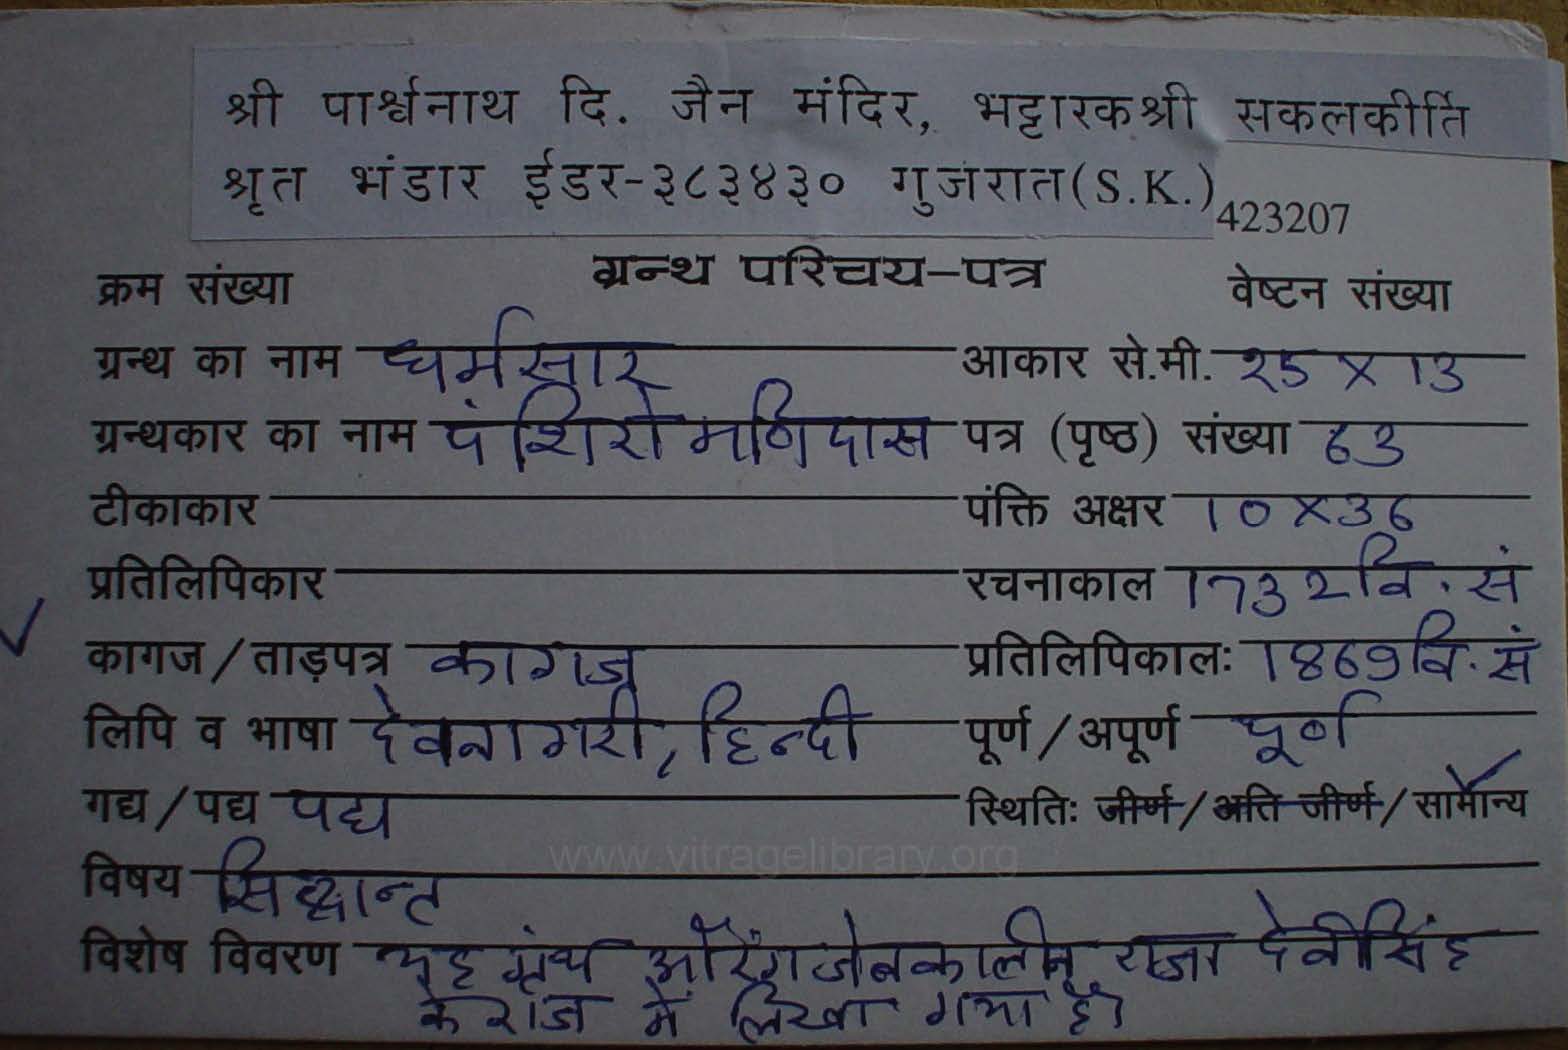 श्री पार्श्वनाथ दि. जैन मंदिर, भट्टारकश्री सकलकीर्ति
श्रृत भंडार ईडर-३८३४३० गुजरात(S.K.) 423207
क्रम संख्या ग्रन्थ परिचय-पत्र वेष्टन संख्या
ग्रन्थ का नाम धर्मसार आकार से.मी. २5 X 13
ग्रन्थकार का नाम पं शिरोमणि दास पत्र (पृष्ठ) संख्या ६3
टीकाकार पंक्ति अक्षर 10 X 3६
प्रतिलिपिकार रचनाकाल 173२ वि. सं
कागज / ताड़पत्र कागज प्रतिलिपिकालः 1869 वि. सं
लिपि व भाषा देवनागरी, हिन्दी पूर्ण / अपूर्ण पूर्ण
गद्य / पद्य पद्य स्थितिः जीर्ण / अति जीर्ण / सामान्य
www.vitragelibrary.org
विषय सिद्धान्त
विशेष विवरण यह ग्रंथ औरंगजेबकालीन राजा देवीसिंह
के राज में लिखा गया है।